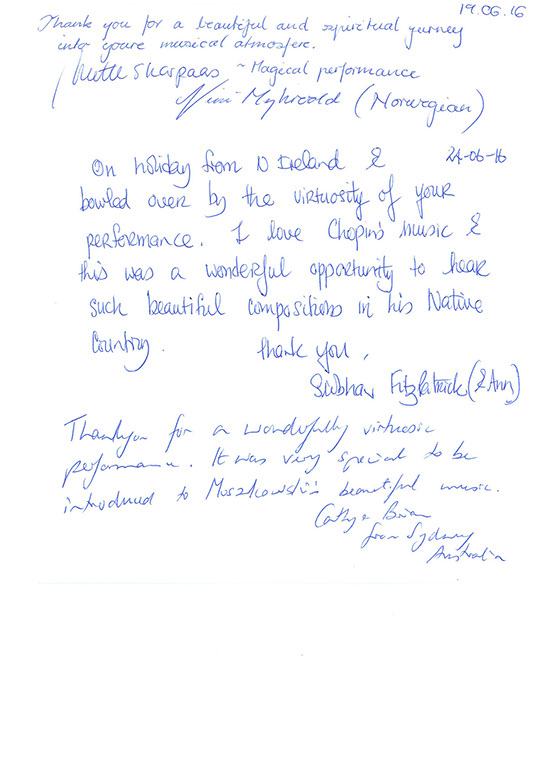 19.06.16
Thank you for a beautiful and spiritual yurney
into youre musical atmosfere.
Mette Skarpaas ~ Magical performance
Nini Myhrvold (Norwegian)
24-06-16
On holiday from N Ireland &
bowled over by the virtuosity of your
performance. I love Chopin's music &
this was a wonderful opportunity to hear
such beautiful compositions in his Native
Country. Thank you,
Siobhan Fitzpatrick (& Ann)
Thankyou for a wonderfully virtuosic
performance. It was very special to be
introduced to Moszkowski's beautiful music.
Cathy & Brian
from Sydney
Australia